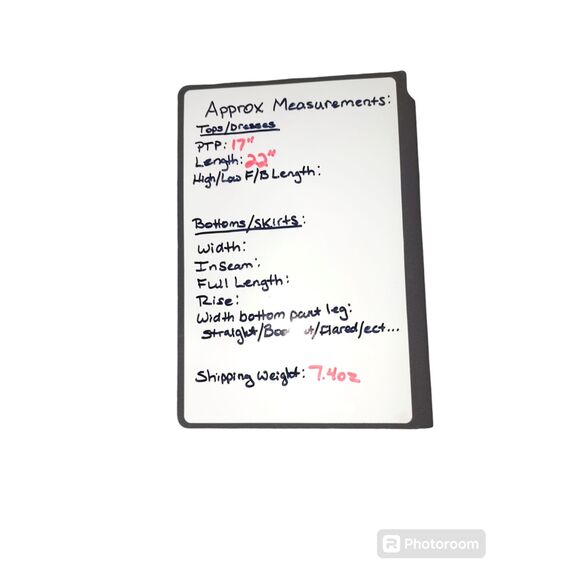 Approx Measurements:
Tops/Dresses
PTP: 17"
Length: 22"
High/Low F/B Length:
Bottoms/Skirts:
Width:
Inseam:
Full Length:
Rise:
Width bottom pant leg:
Straight/Boo ut/Flared/ect...
Shipping Weight: 7.4oz
Photoroom